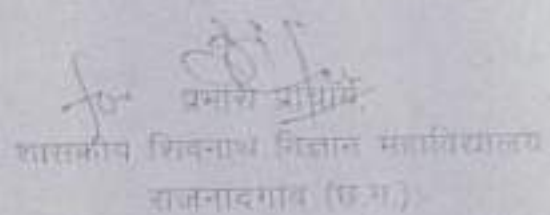 for प्रभारी प्राचार्य
शासकीय शिवनाथ विज्ञान महाविद्यालय
राजनांदगांव (छ.ग.)